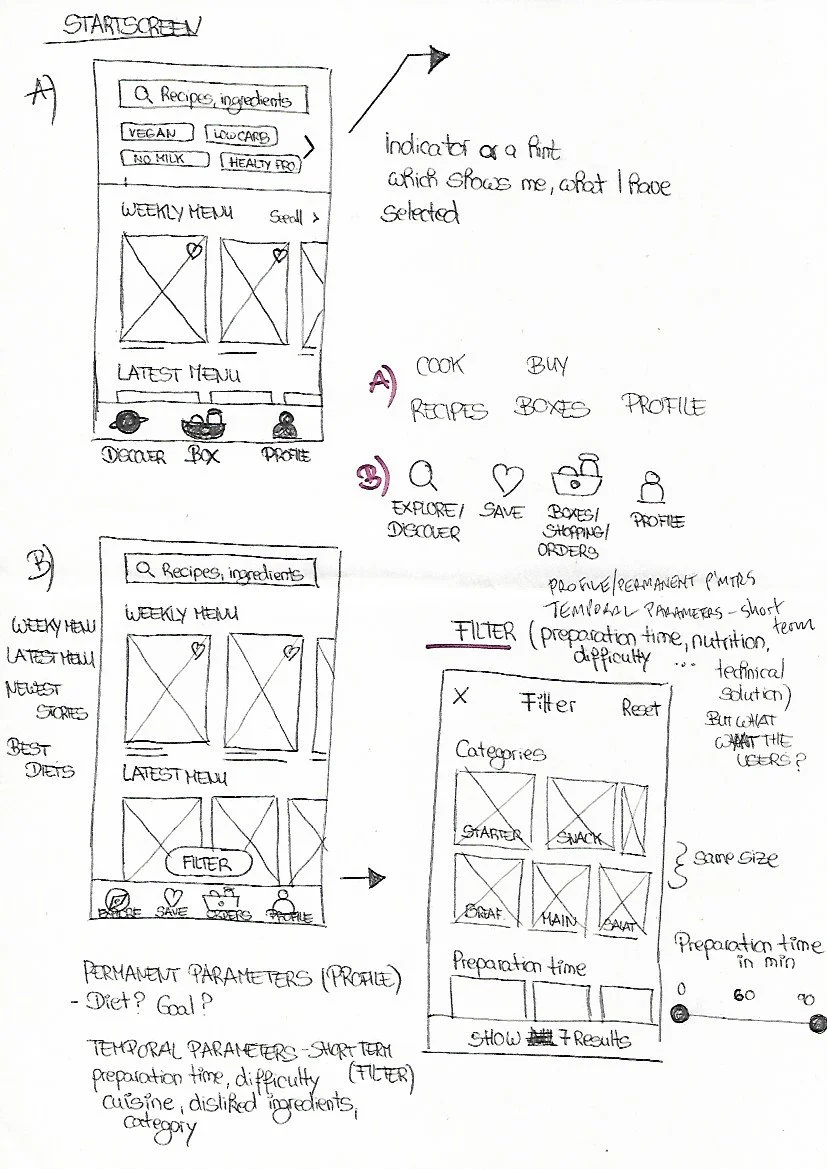 STARTSCREEN
A)
Recipes, ingredients
VEGAN
LOWCARB
NO MILK
HEALTY FRO
WEEKLY MENU
Seeall >
LATEST MENU
DISCOVER
BOX
PROFILE
Indicator or a hint
which shows me, what I have
selected
A)
COOK
BUY
RECIPES
BOXES
PROFILE
B)
EXPLORE/
DISCOVER
SAVE
BOXES/
SHOPPING/
ORDERS
PROFILE
B)
Recipes, ingredients
WEEKLY MENU
LATEST MENU
FILTER
EXPLORE
SAVE
ORDERS
PROFILE
WEEKY MENU
LATEST MENU
NEWEST
STORES
BEST
DIETS
PROFILE/PERMANENT P'MTRS
TEMPORAL PARAMETERS - short
term
FILTER (preparation time, nutrition,
difficulty ... technical
solution)
BUT WHAT
WANT THE
USERS?
X
Filter
Reset
Categories
STARTER
SNACK
BREAF.
MAIN
SALAT
same size
Preparation time
SHOW 7 Results
Preparation time
in min
0
60
90
PERMANENT PARAMETERS (PROFILE)
- Diet? Goal?
TEMPORAL PARAMETERS - SHORT TERM
preparation time, difficulty (FILTER)
cuisine, disliked ingredients,
category